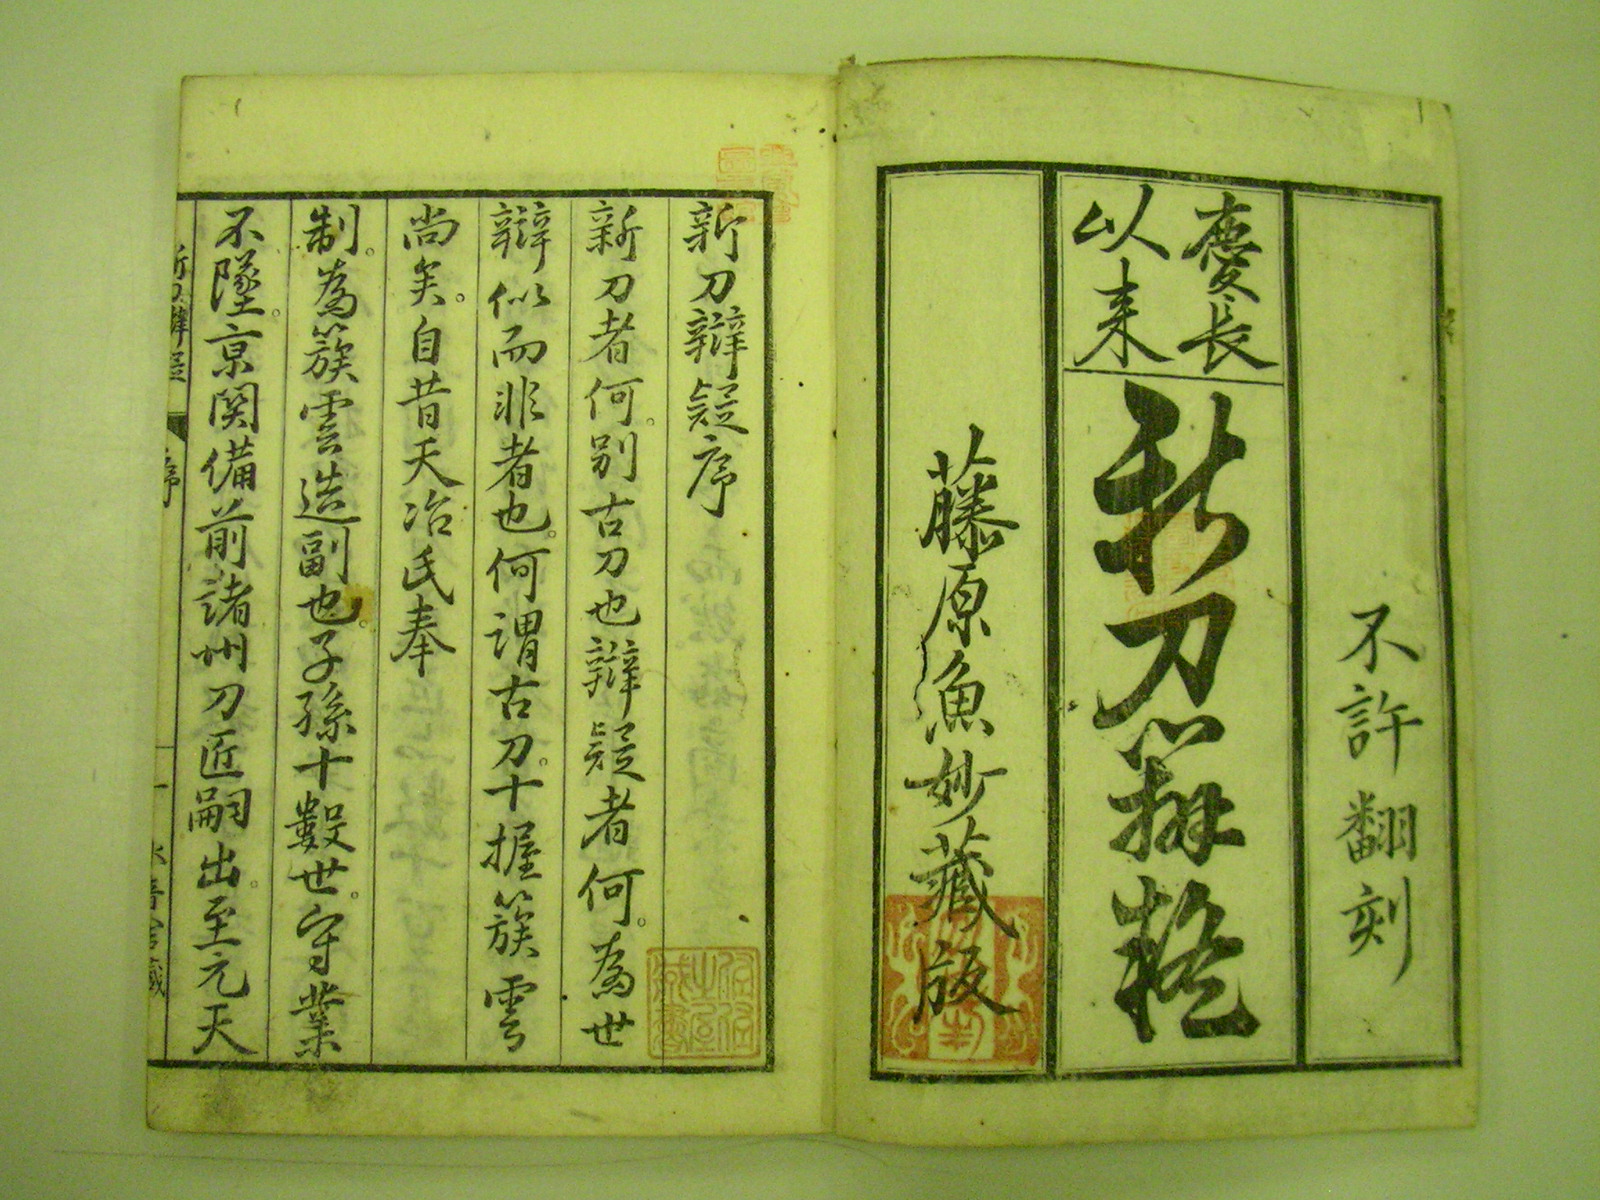 不許翻刻
慶長
以来
新刀辨疑
藤原魚妙藏版
新刀辯疑序
新刀者何。別古刀也辯疑者何。為世
辯似而非者也。何謂古刀。十握簇雲
尚矣。自昔天冶氏奉
制。為簇雲造副也。子孫十數世。守業
不墜。京関備前諸州刀匠嗣出。至元天
序
一